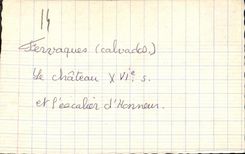 14
Fervaques (calvados.)
Le château XVIe s.
et l'escalier d'Honneur.